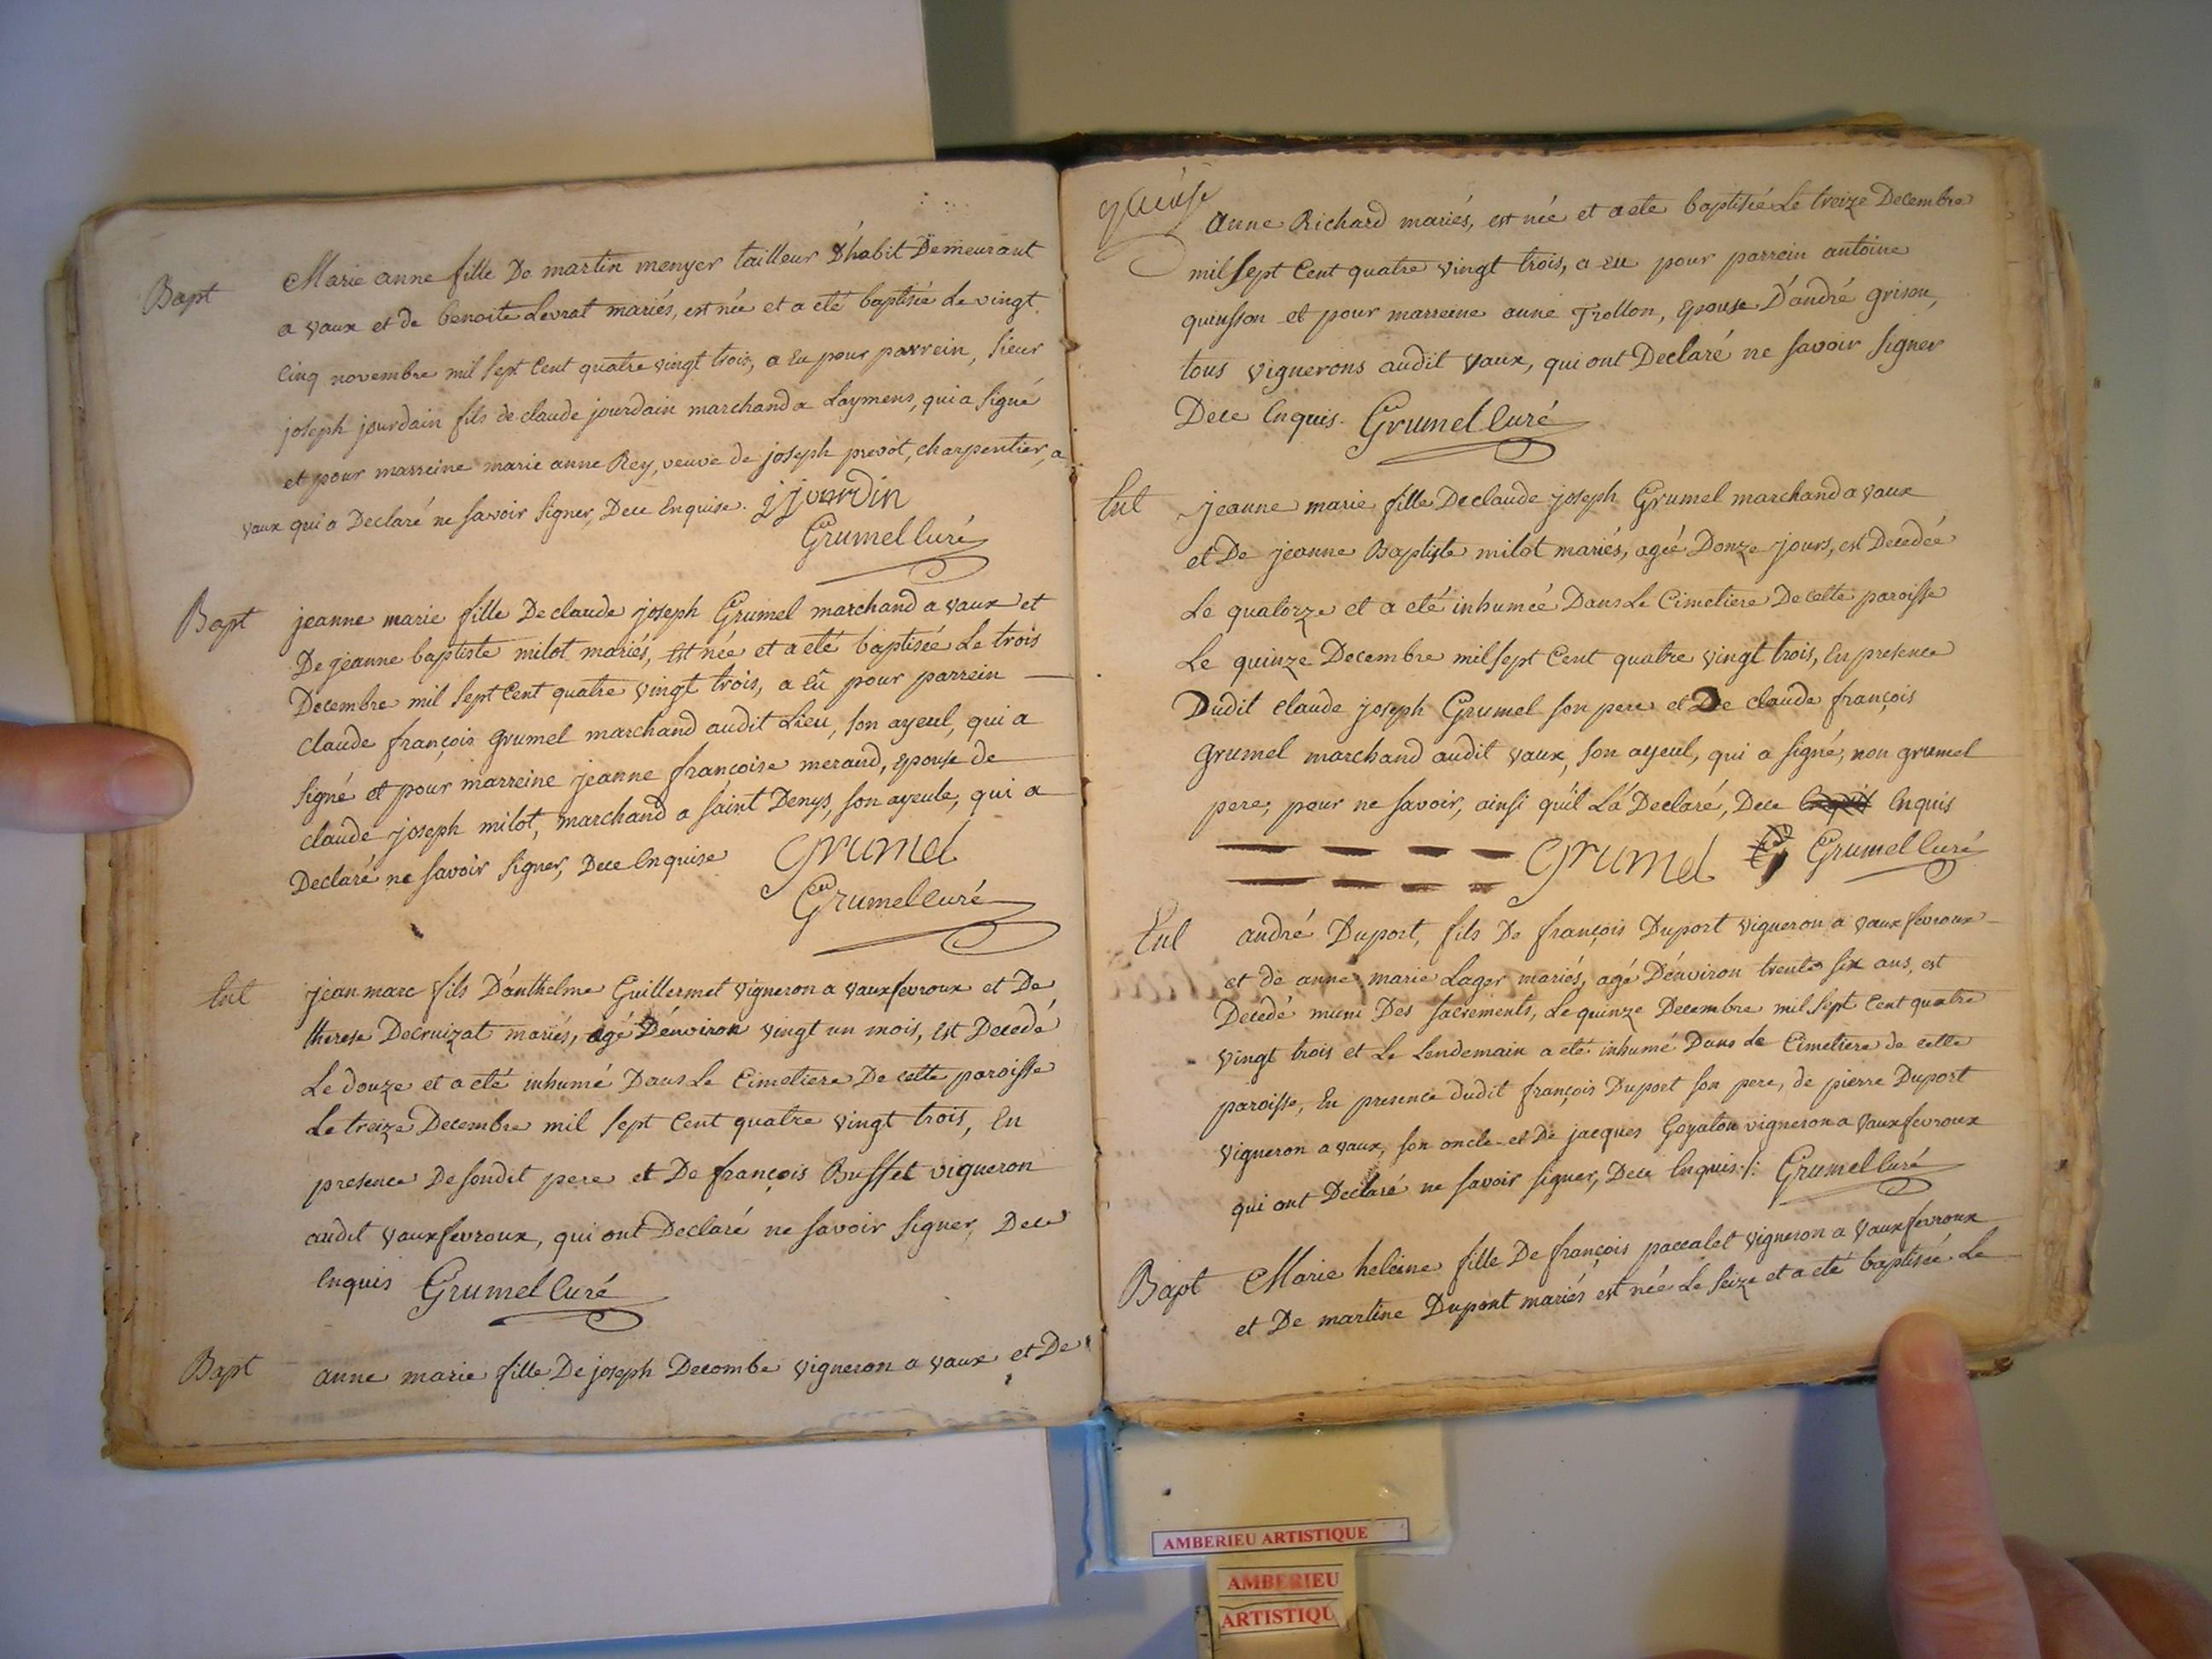 Bapt Marie anne fille De martin menyer tailleur D'habit Demeurant
a vaux et de benoite Levrat mariés, est née et a eté baptisée Le vingt
cinq novembre mil sept Cent quatre vingt trois, a Eu pour parrein, sieur
joseph jourdain fils de claude jourdain marchand a Laymens, qui a signé
et pour marreine marie anne Rey, veuve de joseph prevot, charpentier, a
vaux qui a Declaré ne savoir signer, Dece Enquise. j jourdin
Grumel Curé
Bapt jeanne marie fille De claude joseph Grumel marchand a vaux et
De jeanne baptiste milot mariés, Est née et a eté baptisée Le trois
Decembre mil sept Cent quatre vingt trois, a Eu pour parrein
claude françois grumel marchand audit Lieu, son ayeul, qui a
signé et pour marreine jeanne françoise meraud, epouse de
claude joseph milot, marchand a saint Denys, son ayeule, qui a
Declaré ne savoir signer, Dece Enquise Grumel
Grumel curé
Ent jean marc fils D'anthelme Guillermet vigneron a vauxfevroux et De
therese Decruizat mariés, agé D'environ vingt un mois, Est Decedé
Le douze et a eté inhumé Dans Le Cimetiere De cette paroisse
Le treize Decembre mil sept Cent quatre vingt trois, En
presence De sondit pere et De françois Buffet vigneron
audit vauxfevroux, qui ont Declaré ne savoir signer, Dece
Enquis Grumel Curé
Bapt anne marie fille De joseph Decombe vigneron a vaux et De
anne Richard mariés, est née et a eté baptisée Le treize Decembre
mil sept Cent quatre vingt trois, a eu pour parrein antoine
quinsson et pour marreine anne Trollon, epouse D'andré grison,
tous vignerons audit vaux, qui ont Declaré ne savoir signer
Dece Enquis. Grumel Curé
Ent jeanne marie fille De claude joseph Grumel marchand a vaux
et De jeanne Baptiste milot mariés, agée D'onze jours, est Decedée
Le quatorze et a eté inhumée Dans Le Cimetiere De cette paroisse
Le quinze Decembre mil sept Cent quatre vingt trois, En presence
Dudit claude joseph Grumel son pere et De claude françois
grumel marchand audit vaux, son ayeul, qui a signé, non grumel
pere, pour ne savoir, ainsi qu'il L'a Declaré, Dece Enquis
Grumel Grumel Curé
Ent andré Duport, fils De françois Duport vigneron a vauxfevroux
et de anne marie Lager mariés, agé D'environ trente six ans, est
Decedé muni Des sacrements, Le quinze Decembre mil sept Cent quatre
vingt trois et Le Lendemain a eté inhumé Dans Le Cimetiere de cette
paroisse, En presence dudit françois Duport son pere, de pierre Duport
vigneron a vaux, son oncle et De jacques Goyalon vigneron a vauxfevroux
qui ont Declaré ne savoir signer, Dece Enquis /: Grumel Curé
Bapt Marie heleine fille De françois paccalet vigneron a vauxfevroux
et De martine Dupont mariés est née Le seize et a eté baptisée Le
AMBERIEU ARTISTIQUE
AMBERIEU
ARTISTIQU